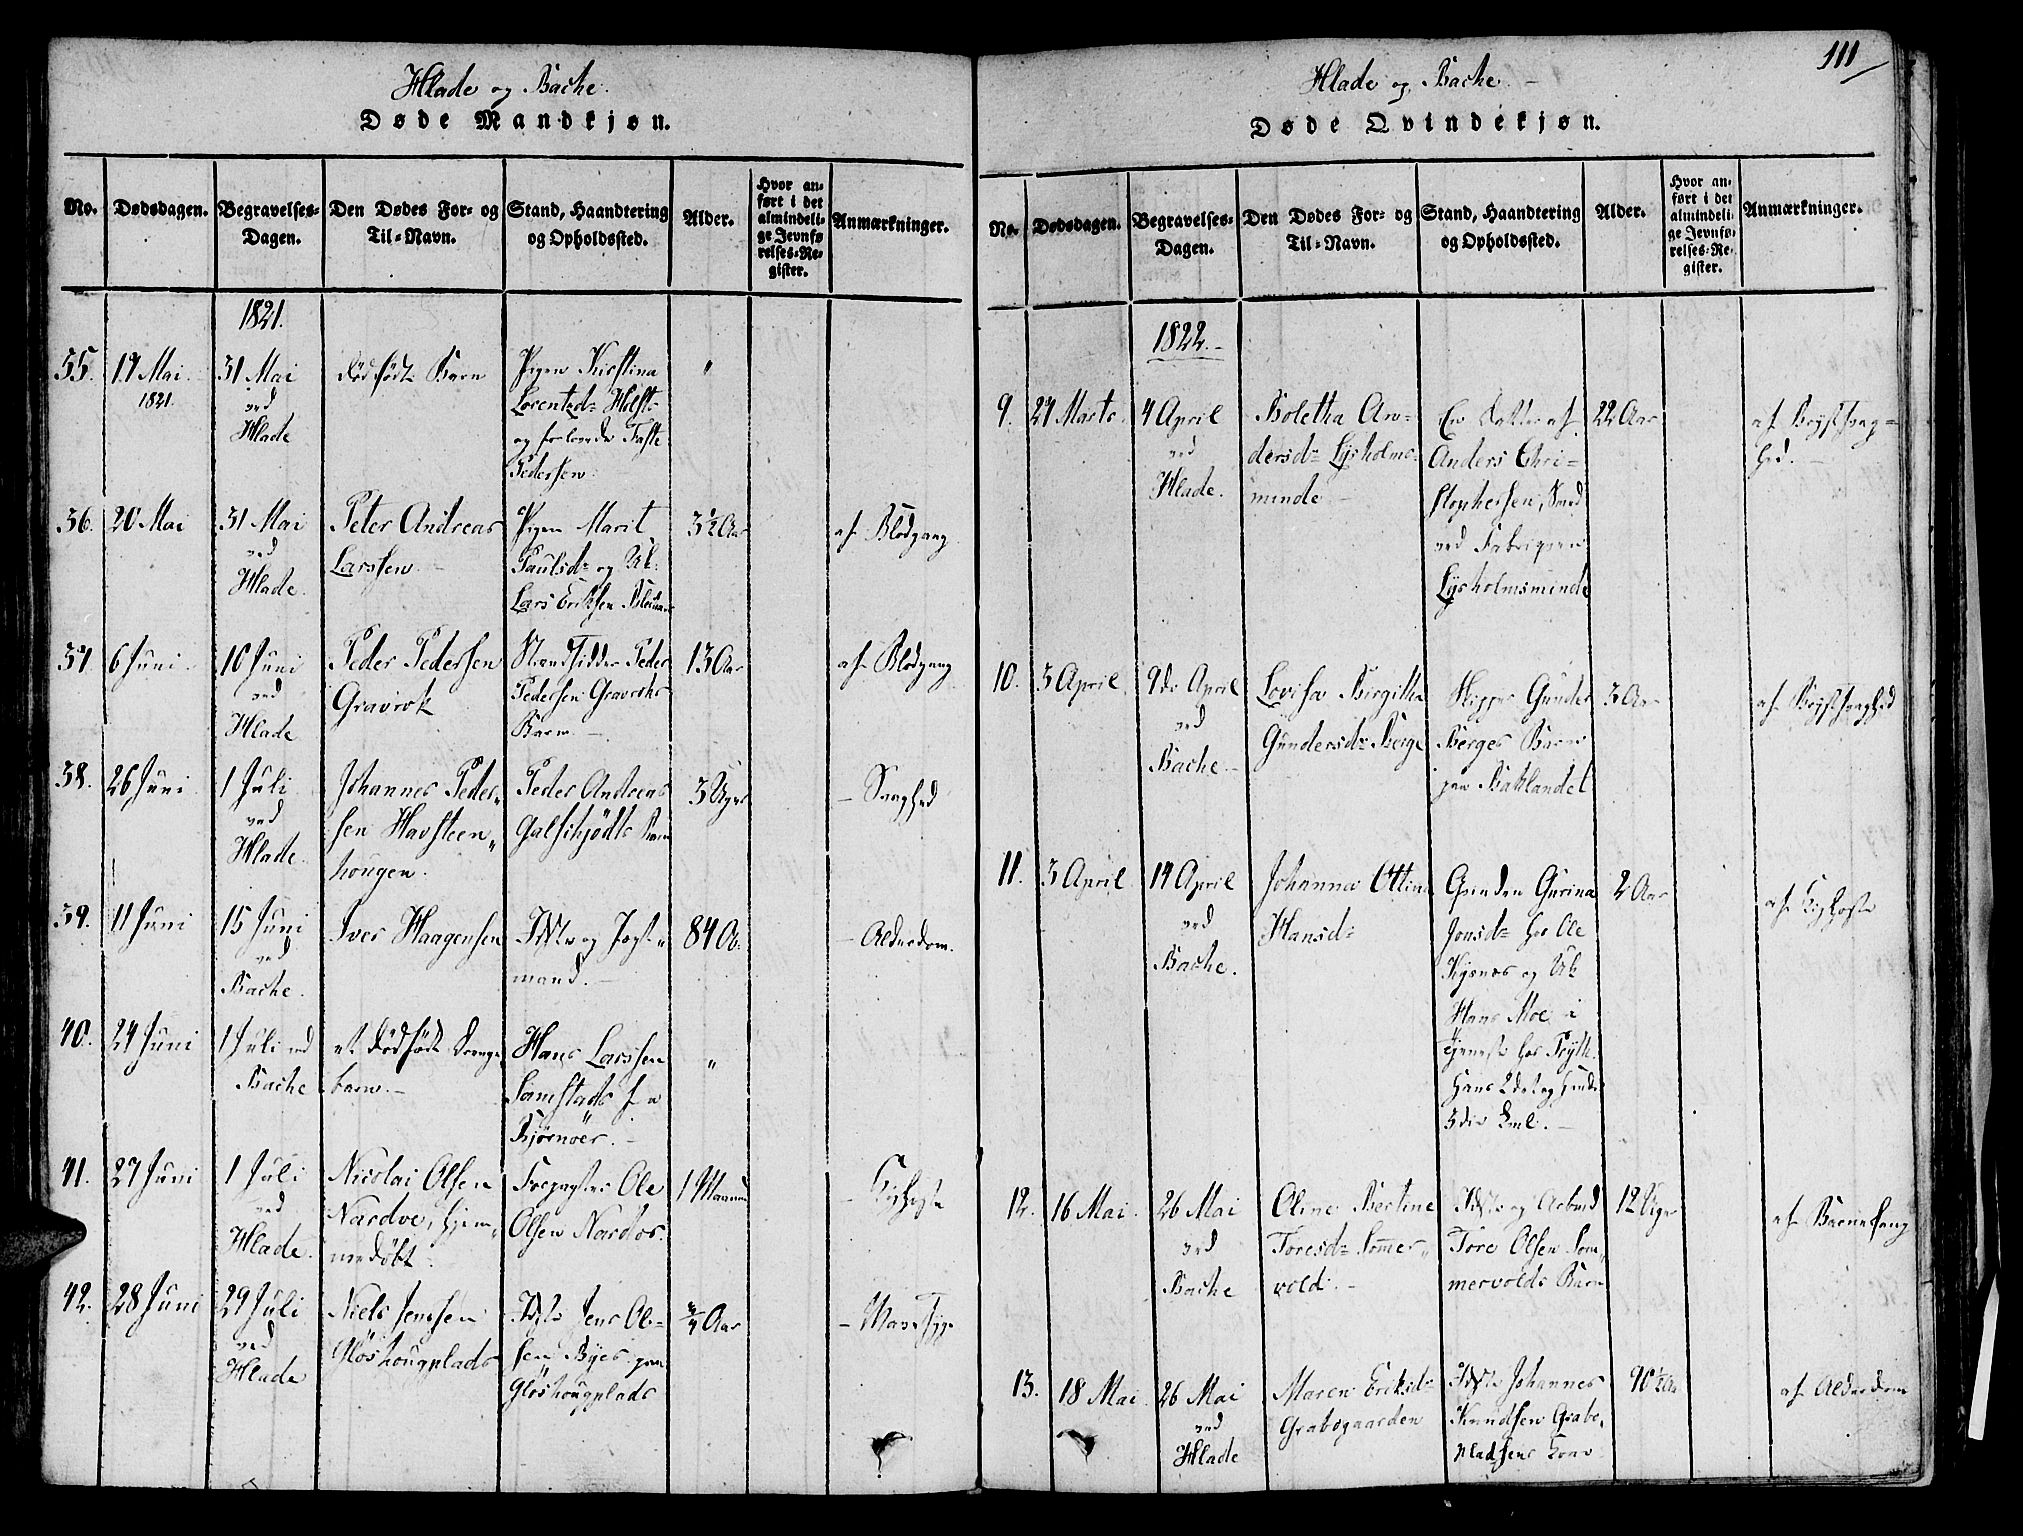 Hlade og Bache.
Døde Mandkjøn.
No.
Dødsdagen.
Begravelses-
Dagen.
Den Dødes For- og
Til-Navn.
Stand, Haandtering
og Opholdssted.
Alder.
Hvor an-
ført i det
almindeli-
ge Jevnfø-
relses-Re-
gister.
Anmærkninger.
1821.
35.
19 Mai.
1821.
31 Mai
ved
Hlade
Dødfødt Barn
Pigen Kirstina
Lorentzd=
og
Pedersen.
"
36.
20 Mai
31 Mai
ved
Hlade.
Peter Andreas
Larssen.
Pigen Marit
Paulsd= og Uk.
Lars Eriksen
3½ Aar
af Blodgang
37.
6 Juni
10 Juni
ved
Hlade
Peder Pedersen
Gravrok
Strandsidder Peder
Pedersen Gravroks
Barn.
13 Aar
af Blodgang
38.
26 Juni
1 Juli
ved
Hlade.
Johannes Peder„
sen Havsteen„
hougen.
Peder Andreas
3 Uger
- Svaghed
39.
11 Juni
15 Juni
ved
Bache.
Iver Haagensen
Indste og
mand.
84 A.
- Alderdom.
40.
24 Juni
1 Juli ved
Bache
et dødfødt Drenge
barn.-
Hans Larssen
"
41.
27 Juni
1 Juli
ved
Hlade.
Nicolai Olsen
Nardoe, hjem„
medøbt.
Forpagter Ole
Olsen Nardos.
1 Maaned
- Kighoste
42.
28 Juni
29 Juli
ved
Hlade
Niels Jenssen
Gløshougplads
Indste Jens Ol-
sen Byes paa
Gløshougplads
¾ Aar
- Mavesyge
111
Hlade og Bache.-
Døde Qvindekjøn.
No.
Dødsdagen.
Begravelses-
Dagen.
Den Dødes For- og
Til-Navn.
Stand, Haandtering
og Opholdssted.
Alder.
Hvor an-
ført i det
almindeli-
ge Jevnfø-
relses-Re-
gister.
Anmærkninger.
1822.-
9.
27 Marts.
4 April
ved
Hlade.
Boletha An-
dersd= Lysholms-
minde -
En Datter af
Anders Chri-
stophersen, Smed
ved Fabriqven
Lysholmsminde
22 Aar
af Brystsvag=
hed.
10.
3 April
9de April
ved
Bache.-
Lovisa Birgitha
Gundersd= Berge
Skipper Gunder
Berges Barn
paa Baklandet
3 Aar
af Brystsvaghed
11.
3 April
14 April
ved
Bache.
Johanna Ottina
Hansd=
Qvinden Gurina
Jonsd= hos Ole
og Uk
Hans Moe i
Tjeneste hos
2 Aar
af Kighoste
12.
16 Mai.
26 Mai
ved
Bache
Oline Bertine
Toresd= Sommer„
vold.-
Indste og Arbmd
Tore Olsen Som„
mervolds Barn
12 Uger
af Barnesang
13.
18 Mai.
26 Mai
ved
Hlade
Maren Eriksd=
Grabsgaarden
Indste Johannes
Knudsen Grabs„
pladsens Kone
90½ Aar
af Alderdom